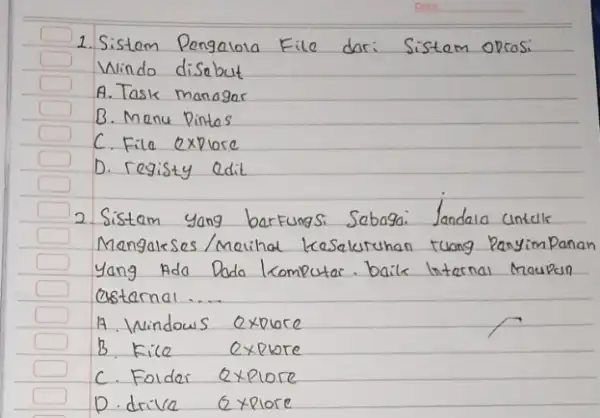 1. Sistem Pengelola File dari Sistem Oprasi
Windo disebut
A. Task manager
B. Menu Pintas
C. File explore
D. registy edit
2. Sistem yang berfungsi Sebagai Jandela untuk
Mengakses / Melihat keseluruhan ruang Penyimpanan
yang Ada Pada komputer. baik Internal maupun
esternal ....
A. Windows explore
B. File explore
C. Folder explore
D. drive explore